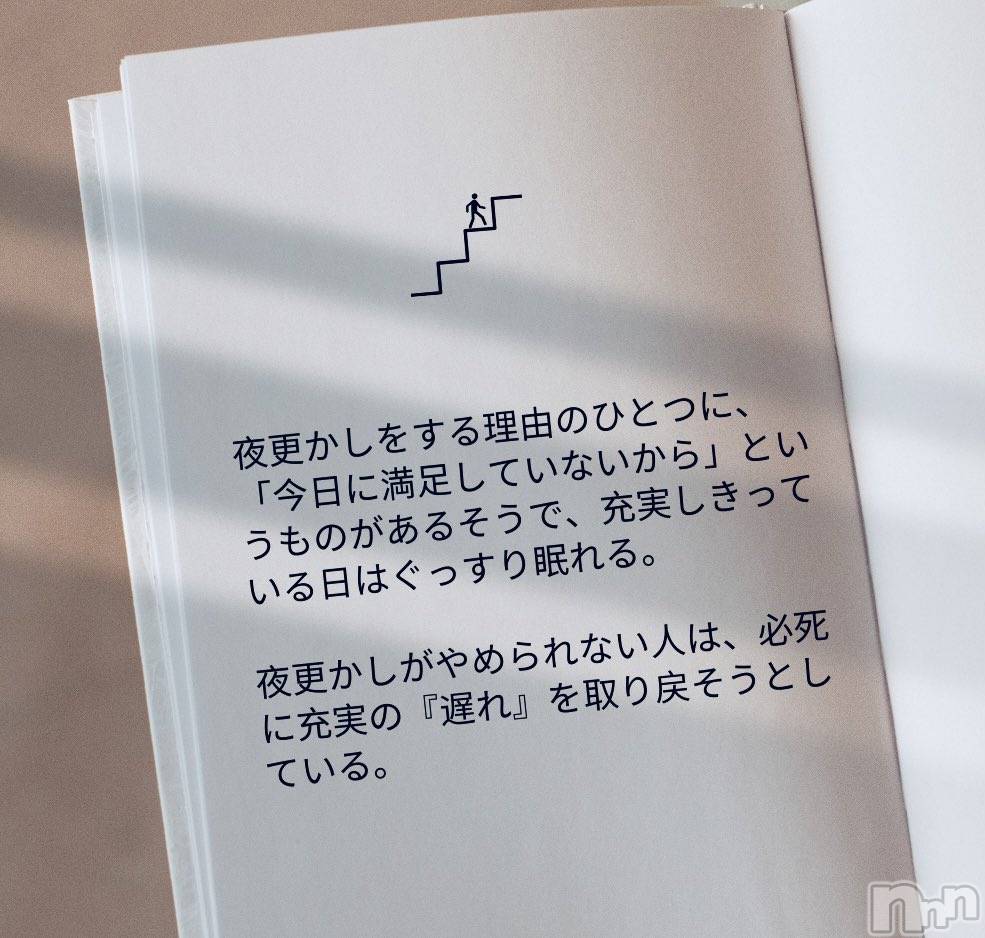 夜更かしをする理由のひとつに、
「今日に満足していないから」とい
うものがあるそうで、充実しきって
いる日はぐっすり眠れる。
夜更かしがやめられない人は、必死
に充実の『遅れ』を取り戻そうとし
ている。
nnn